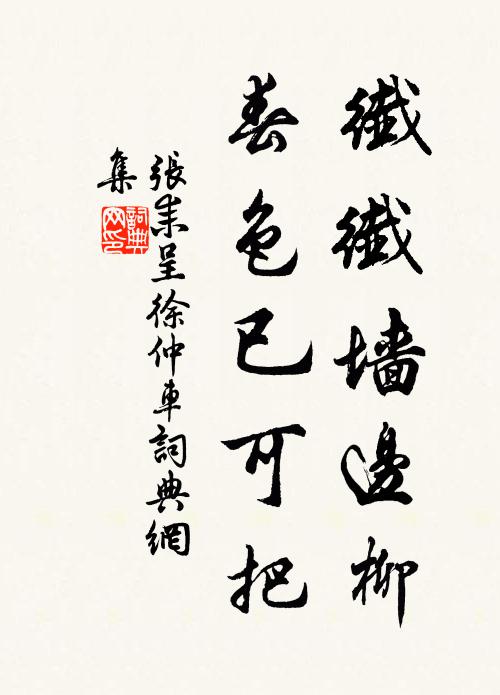 纖纖墙邊柳
春色已可把
張耒呈徐仲車詞典網
集
詞典
网印